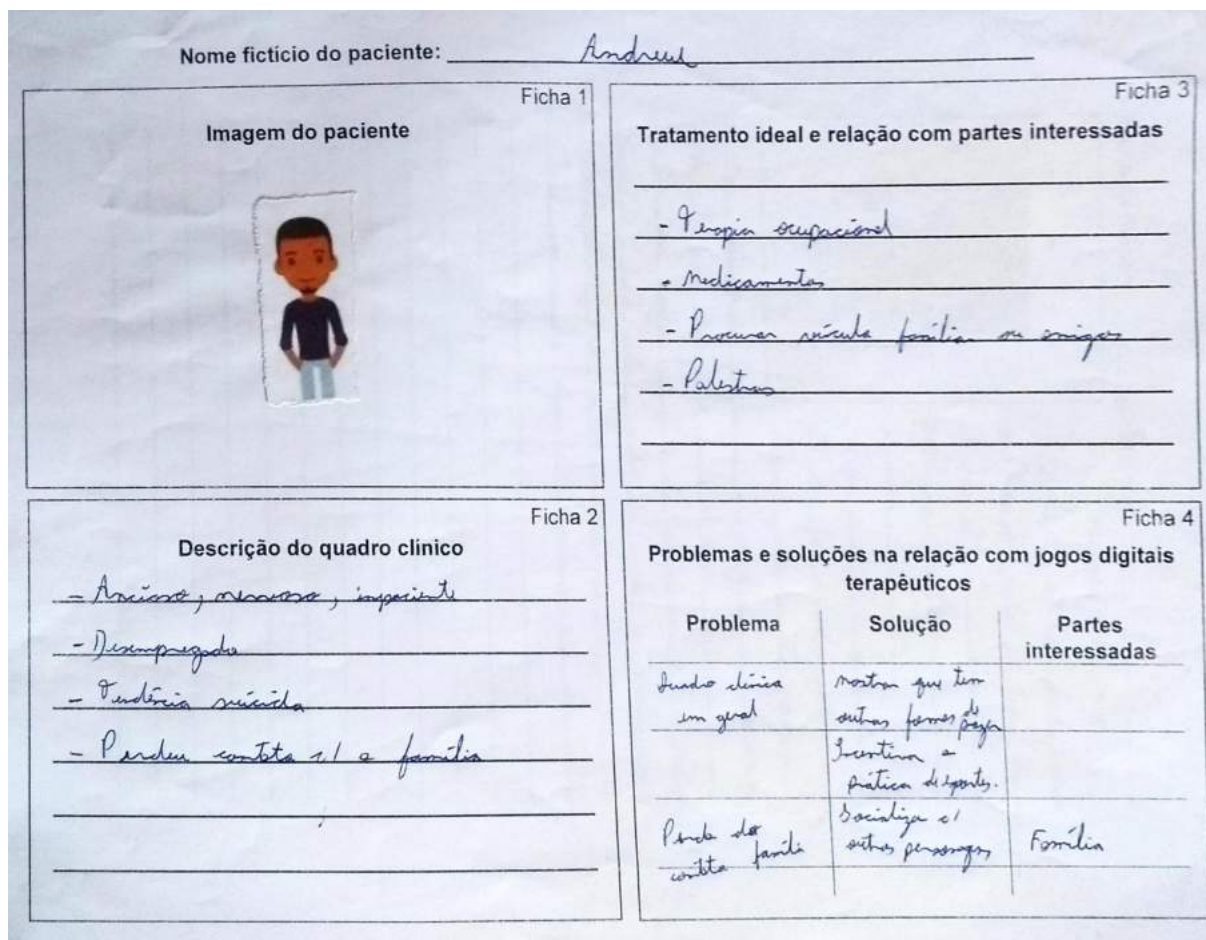 Nome fictício do paciente: Andreul
Ficha 1
Imagem do paciente
Ficha 2
Descrição do quadro clínico
- Ancioso, nervoso, impaciente
- Desempregado
- Tendência suicida
- Perdeu contato c/ a família
Ficha 3
Tratamento ideal e relação com partes interessadas
- Terapia ocupacional
- Medicamentos
- Procurar vínculo família ou amigos
- Palestras
Ficha 4
Problemas e soluções na relação com jogos digitais
terapêuticos
Problema
Solução
Partes
interessadas
Quadro clínico
em geral
mostrar que tem
outras formas de prazer
Incentiva a
prática de esportes.
Perda do
contato família
Socializa c/
outros personagens
Família